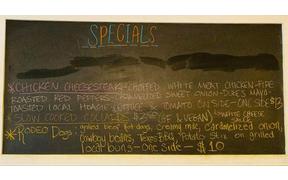 SPECIALS
*CHICKEN CHEESESTEAK - CHOPPED WHITE MEAT CHICKEN - FIRE
ROASTED RED PEPPERS - SWEET ONION - DUKES MAYO
TOASTED LOCAL HOAGIE LETTUCE & TOMATO ON SIDE - ONE SIDE $13
SLOW COOKED COLLARDS (GF & VEGAN) WHITE CHEESE
SAUCE
*RODEO DOGS - grilled beef hot dogs, creamy mac, caramelized onion,
cowboy beans, Texas Pete, Potato Stix on grilled
local buns - ONE SIDE - $10